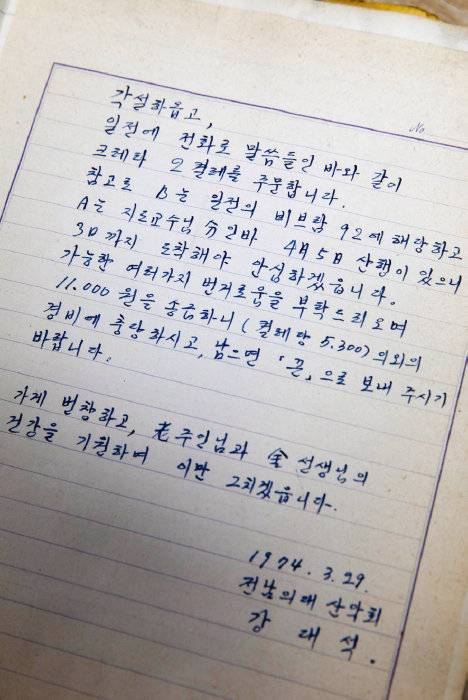 No
각설하옵고,
일전에 전화로 말씀들인 바와 같이
크레타 2켤레를 주문합니다.
참고로 B는 일전의 비브람 92에 해당하고
A는 지도교수님 分인바 4月5日 산행이 있으니
3日까지 도착해야 안심하겠읍니다.
가능한 여러가지 번거로움을 부탁드리오며
11.000 원을 송금하니 (켤레당 5.300) 의외의
경비에 충당하시고, 남으면 「끈」으로 보내 주시기
바랍니다.
가게 번창하고, 老주인님과 金 선생님의
건강을 기원하며 이만 그치겠읍니다.
1974. 3. 29.
전남의대 산악회
강 대 석.